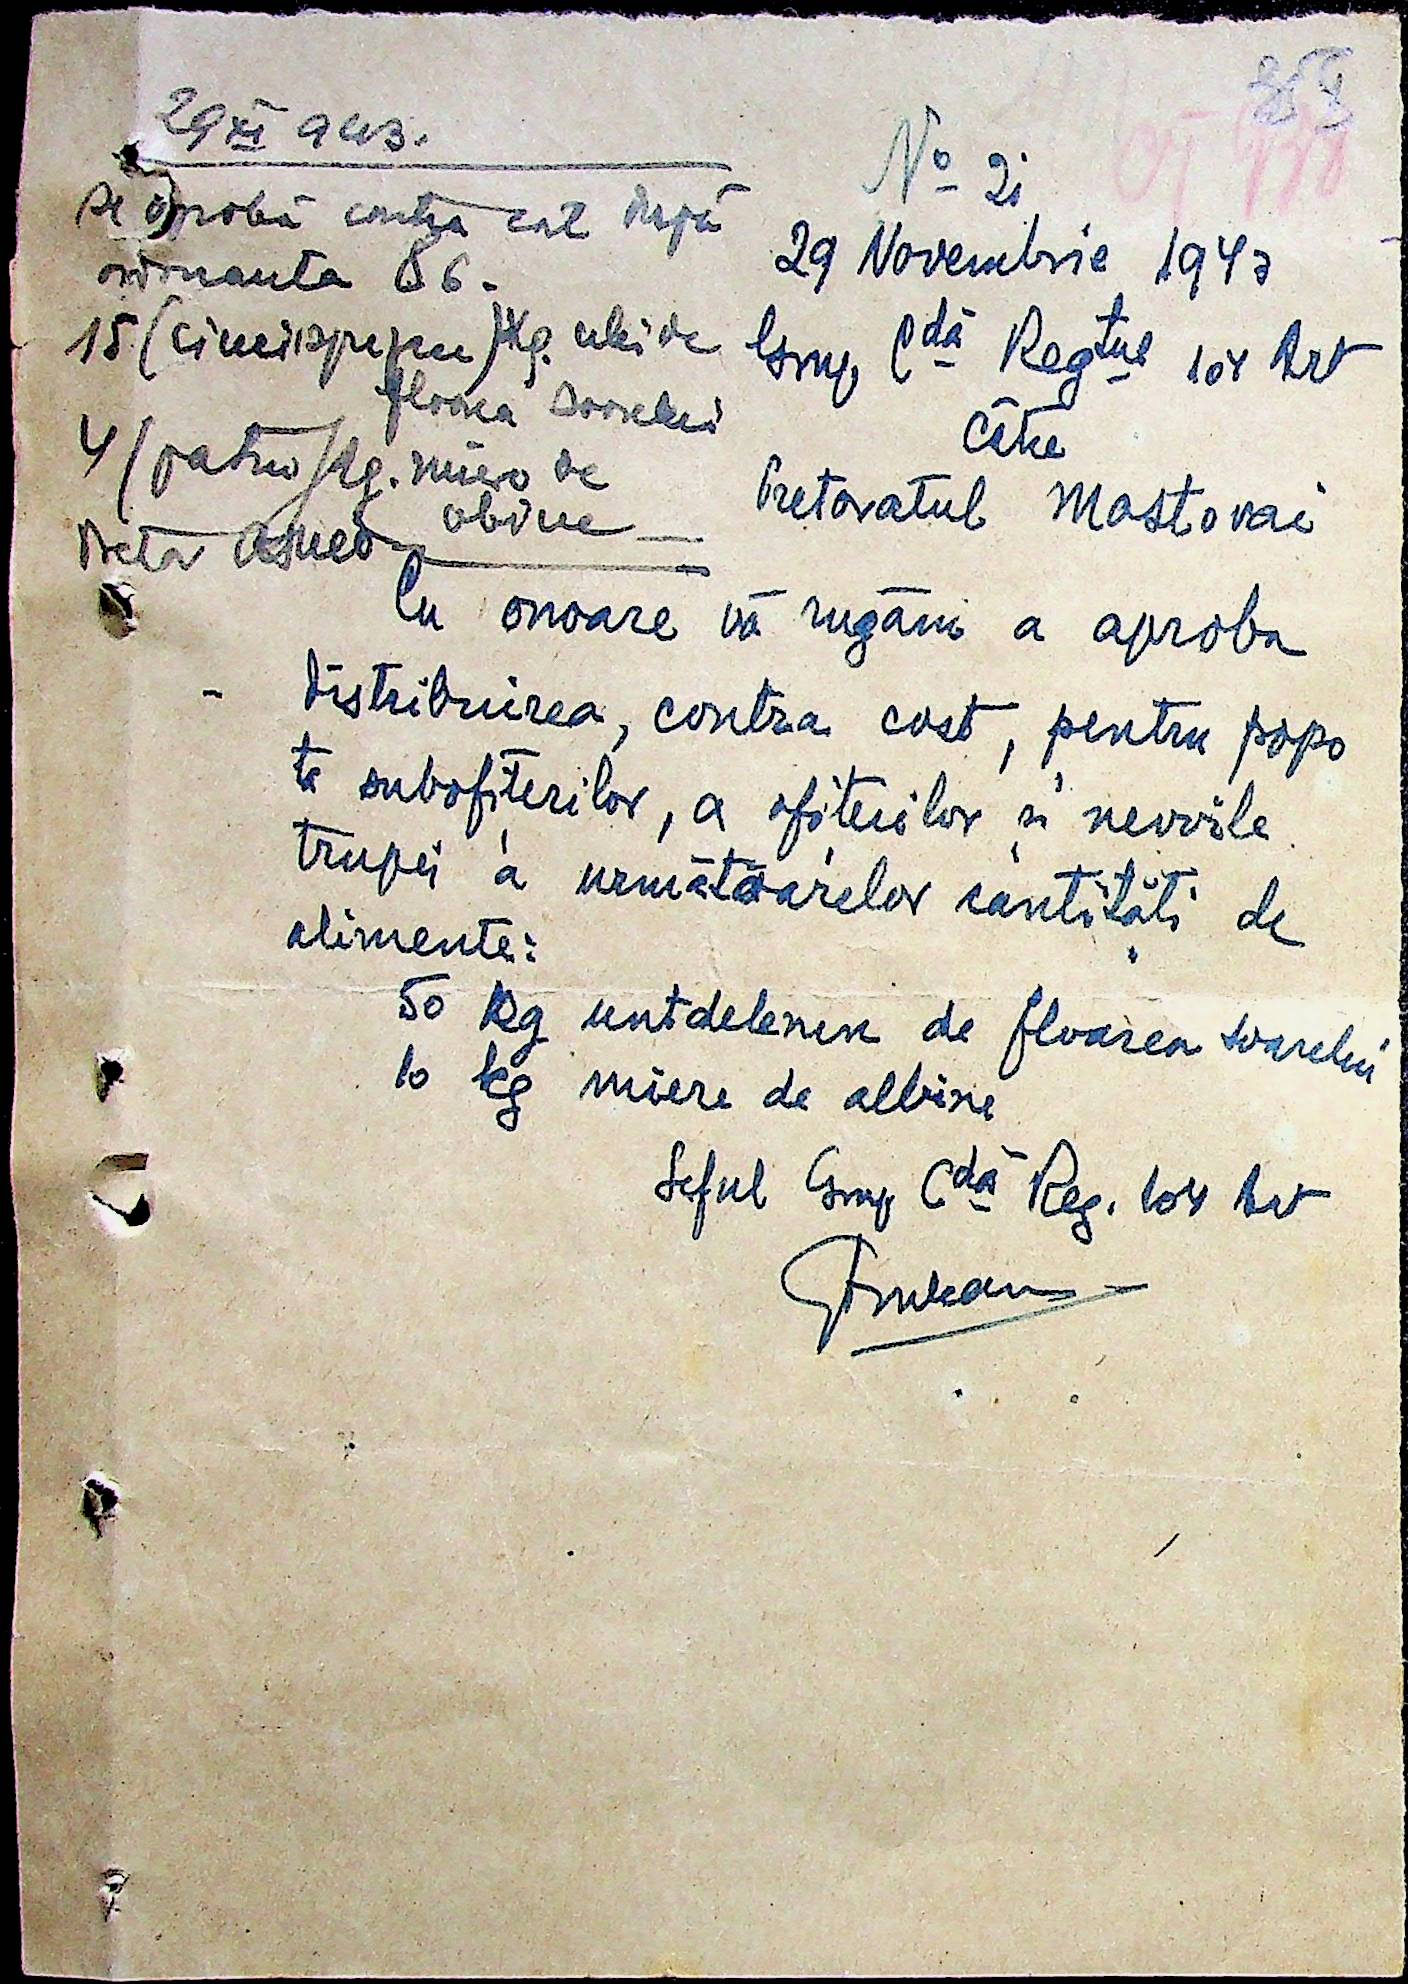 29 XI 943.
Se aprobă contra cost după
ordonanta 86.
15 (cincisprezece) Kg. ulei de
floarea soarelui
4 (patru) Kg. miere de
albine
Pretor
No 21
29 Novembrie 1943
Grup Cdă Regtul 104 Art
Către
Pretoratul Mostovai
Cu onoare vă rugăm a aproba
distribuirea, contra cost, pentru popo
ta subofiterilor, a ofiterilor și nevoile
trupei a următoarelor cantități de
alimente:
50 kg untdelemn de floarea soarelui
10 kg miere de albine
Seful Grup Cdă Reg. 104 Art